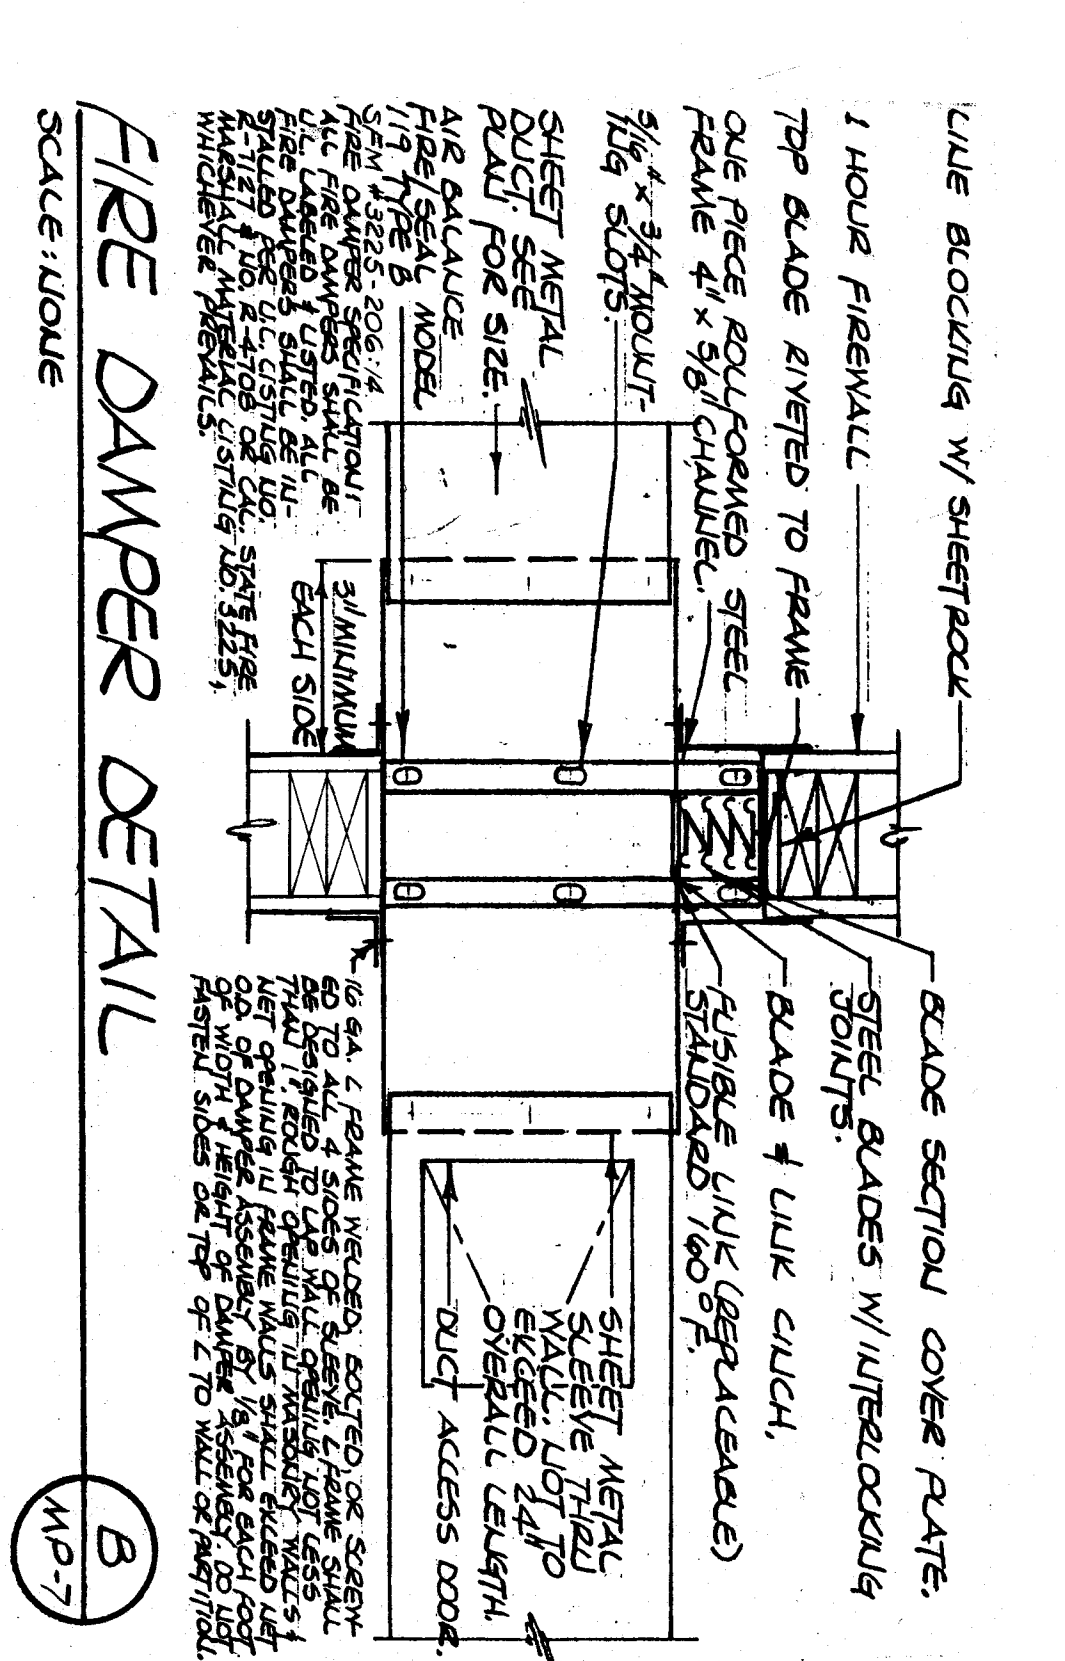 LINE BLOCKING W/ SHEETROCK
1 HOUR FIREWALL
TOP BLADE RIVETED TO FRAME
ONE PIECE ROLLFORMED STEEL
FRAME 4" x 5/8" CHANNEL.
5/16" x 3/4" MOUNT-
ING SLOTS.
SHEET METAL
DUCT. SEE
PLAN FOR SIZE.
AIR BALANCE
FIRE/SEAL MODEL
119 TYPE B
SFM #3225-206:14
FIRE DAMPER SPECIFICATION:
ALL FIRE DAMPERS SHALL BE
U.L. LABELED & LISTED. ALL
FIRE DAMPERS SHALL BE IN-
STALLED PER U.L. LISTING NO.
R-7127 & NO. R-4708 OR CAL. STATE FIRE
MARSHALL MATERIAL LISTING NO. 3225,
WHICHEVER PREVAILS.
3" MINIMUM
EACH SIDE
BLADE SECTION COVER PLATE.
STEEL BLADES W/ INTERLOCKING
JOINTS.
BLADE & LINK CINCH.
FUSIBLE LINK (REPLACEABLE)
STANDARD 160°F.
SHEET METAL
SLEEVE THRU
WALL. NOT TO
EXCEED 24"
OVERALL LENGTH.
DUCT ACCESS DOOR.
16 GA. L FRAME WELDED, BOLTED, OR SCREW-
ED TO ALL 4 SIDES OF SLEEVE. L FRAME SHALL
BE DESIGNED TO LAP WALL OPENING NOT LESS
THAN 1". ROUGH OPENING IN MASONRY WALLS &
NET OPENING IN FRAME WALLS SHALL EXCEED NET
O.D. OF DAMPER ASSEMBLY BY 1/8" FOR EACH FOOT
OF WIDTH & HEIGHT OF DAMPER ASSEMBLY. DO NOT
FASTEN SIDES OR TOP OF L TO WALL OR PARTITION.
FIRE DAMPER DETAIL
SCALE: NONE
B
MP-7